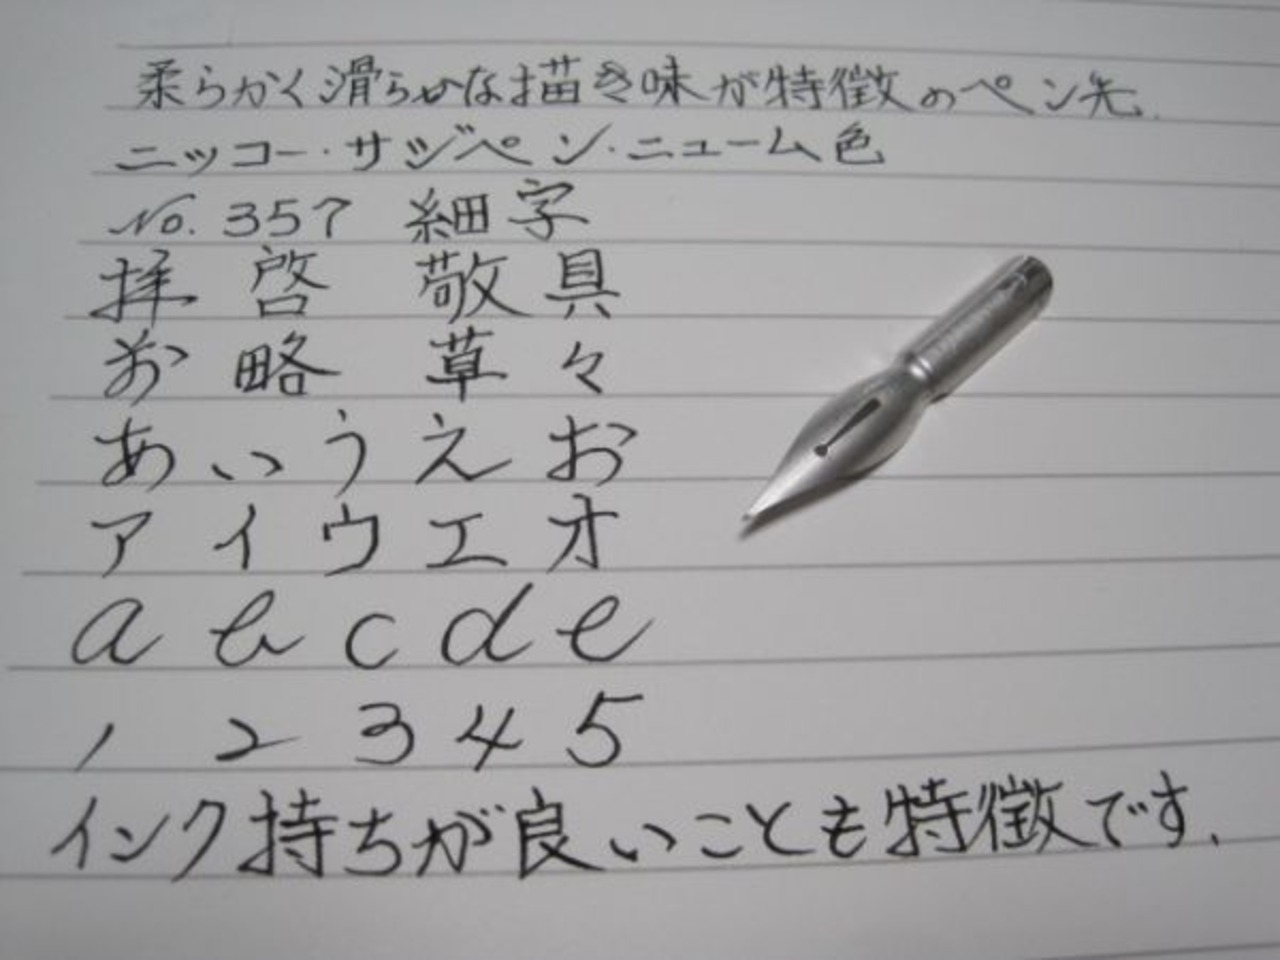 柔らかく滑らかな描き味が特徴のペン先.
ニッコー・サジペン・ニューム色
No. 357 細字
拝 啓 敬 具
前 略 草 々
あ い う え お
ア イ ウ エ オ
a b c d e
1 2 3 4 5
インク持ちが良いことも特徴です.